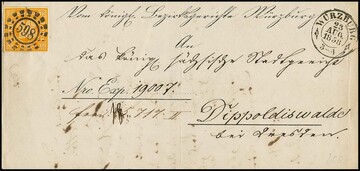 598
Vom königl. Bezirksgerichte Würzburg
WÜRZBURG
23
AUG.
1858
An
das königl. sächsische Stadtgericht
Nro. Exp. 19007.
Dippoldiswalde
bei Dresden.